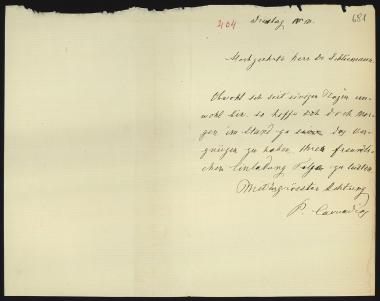 404
Dienstag
681
Hochgeehrter Herr Dr Schliemann
Obwohl ich seit einigen Tagen un-
wohl bin, so hoffe ich doch mor-
gen im Stand zu das Ver-
gnügen zu haben Ihrer freundli-
chen Einladung Folge zu leisten
Mit grösster Achtung
P. Cavvadias